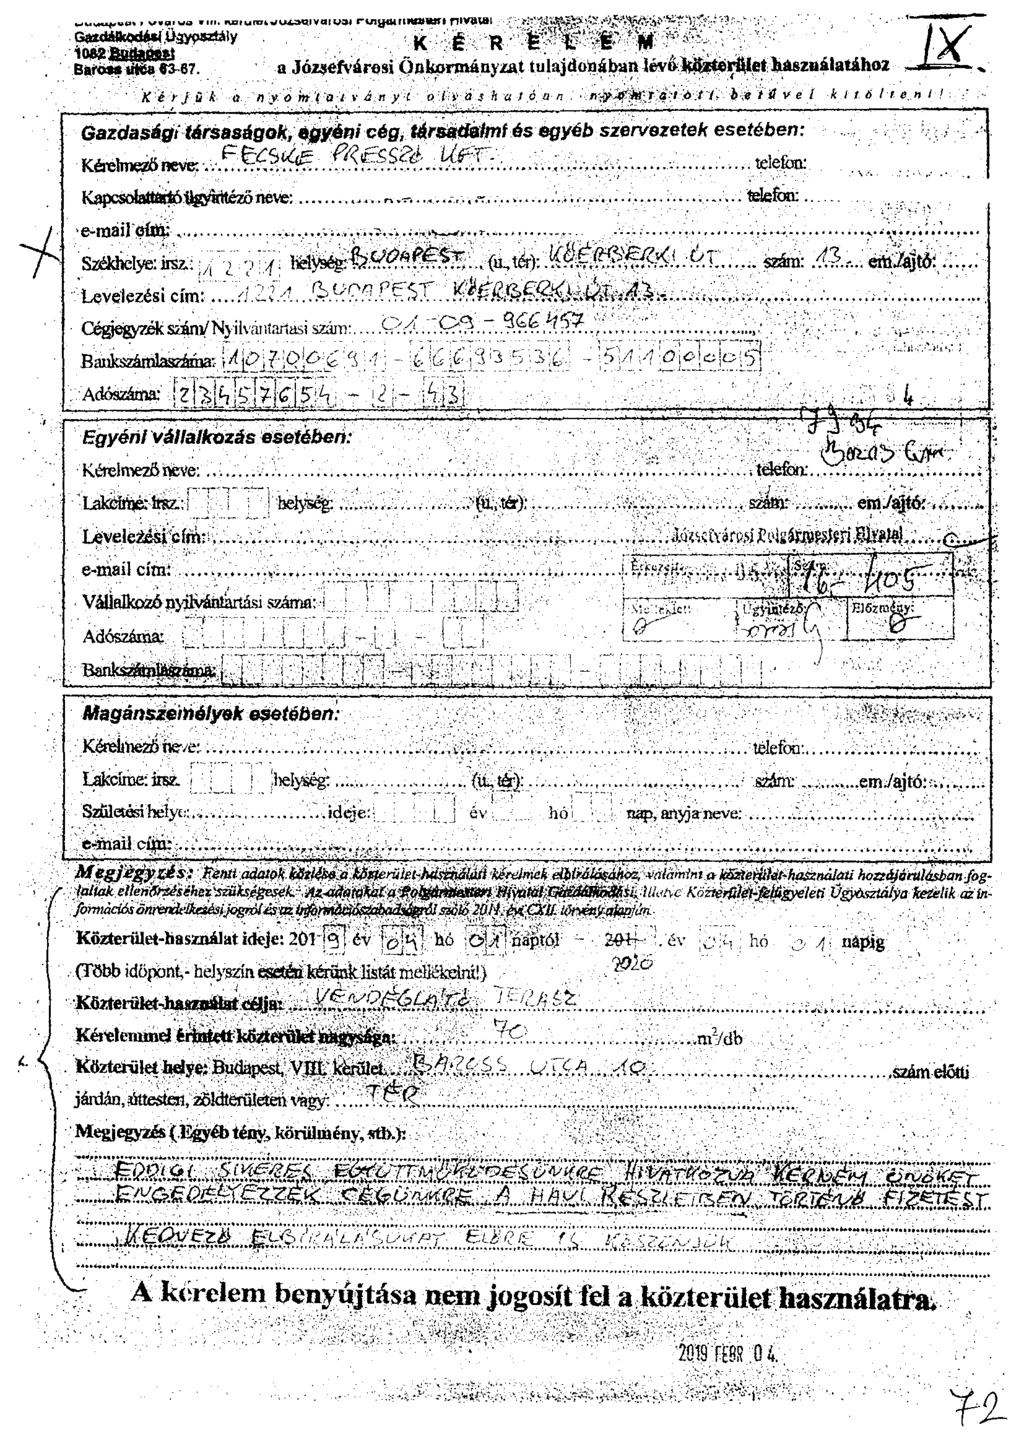 Budapest Főváros VIII. kerület Józsefvárosi Polgármesteri Hivatal
Gazdálkodási Ügyosztály
1082 Budapest
Baross utca 63-67.
K É R E L E M
IX.
a Józsefvárosi Önkormányzat tulajdonában lévő közterület használatához
Kérjük a nyomtatványt olvashatóan, nyomtatott betűvel kitölteni!
Gazdasági társaságok, egyéni cég, társadalmi és egyéb szervezetek esetében:
Kérelmező neve: FECSKE PRESSZÓ KFT. telefon:
Kapcsolattartó ügyintéző neve: telefon:
e-mail cím:
Székhelye: irsz.: 1221 helység: BUDAPEST (u., tér): KŐÉRBERKI ÚT szám: 13 em./ajtó:
Levelezési cím: 1221 BUDAPEST KŐÉRBERKI ÚT 13
Cégjegyzék szám/ Nyilvántartási szám: 01-09-966457
Bankszámlaszáma: 10700691-66693536-51100005
Adószáma: 23457654-2-43
4
Egyéni vállalkozás esetében:
Kérelmező neve: telefon:
Lakcíme: irsz.: helység: (u., tér): szám: em./ajtó:
Levelezési cím: Józsefvárosi Polgármesteri Hivatal
e-mail cím: Érkezett: 05 Szám: 16- 405
Vállalkozó nyilvántartási száma:
Melléklet: Ügyintéző: Előzmény:
Adószáma:
Bankszámlaszáma:
Magánszemélyek esetében:
Kérelmező neve: telefon:
Lakcíme: irsz. helység: (u., tér): szám: em./ajtó:
Születési helye: ideje: év hó nap, anyja neve:
e-mail cím:
Megjegyzés: Fenti adatok közlése a közterület-használati kérelmek elbírálásához, valamint a közterület-használati hozzájárulásban fog-
laltak ellenőrzéséhez szükségesek. Az adatokat a Polgármesteri Hivatal Gazdálkodási, illetve Közterület-felügyeleti Ügyosztálya kezelik az in-
formációs önrendelkezési jogról és az információszabadságról szóló 2011. évi CXII. törvény alapján.
Közterület-használat ideje: 2019 év 04 hó 01 naptól - 201 év 04 hó 01 napig
2020
(Több időpont,- helyszín esetén kérünk listát mellékelni!)
Közterület-használat célja: VENDÉGLÁTÓ TERASZ
Kérelemmel érintett közterület nagysága: 70 m²/db
Közterület helye: Budapest, VIII. kerület BAROSS UTCA 10 szám előtti
járdán, úttesten, zöldterületen vagy: TÉR
Megjegyzés ( Egyéb tény, körülmény, stb.):
EDDIGI SIKERES EGYÜTTMŰKÖDÉSÜNKRE HIVATKOZVA KÉRNÉM ÖNÖKET
ENGEDÉLYEZZÉK CÉGÜNKRE A HAVI RÉSZLETBEN TÖRTÉNŐ FIZETÉST
KEDVEZŐ ELBÍRÁLÁSUKAT ELŐRE IS KÖSZÖNJÜK
A kérelem benyújtása nem jogosít fel a közterület használatra.
2019 FEBR 04.
72